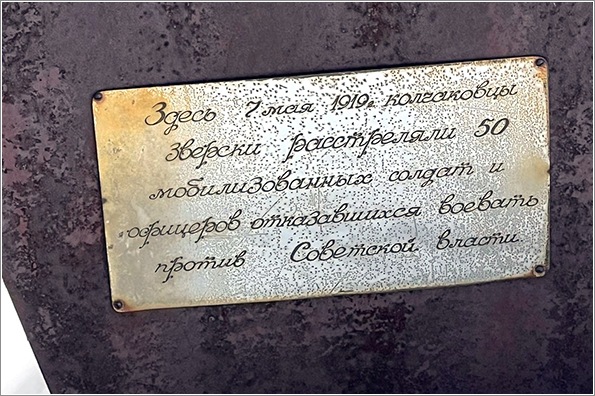 Здесь 7 мая 1919г. колчаковцы
зверски расстреляли 50
мобилизованных солдат и
офицеров отказавшихся воевать
против Советской власти